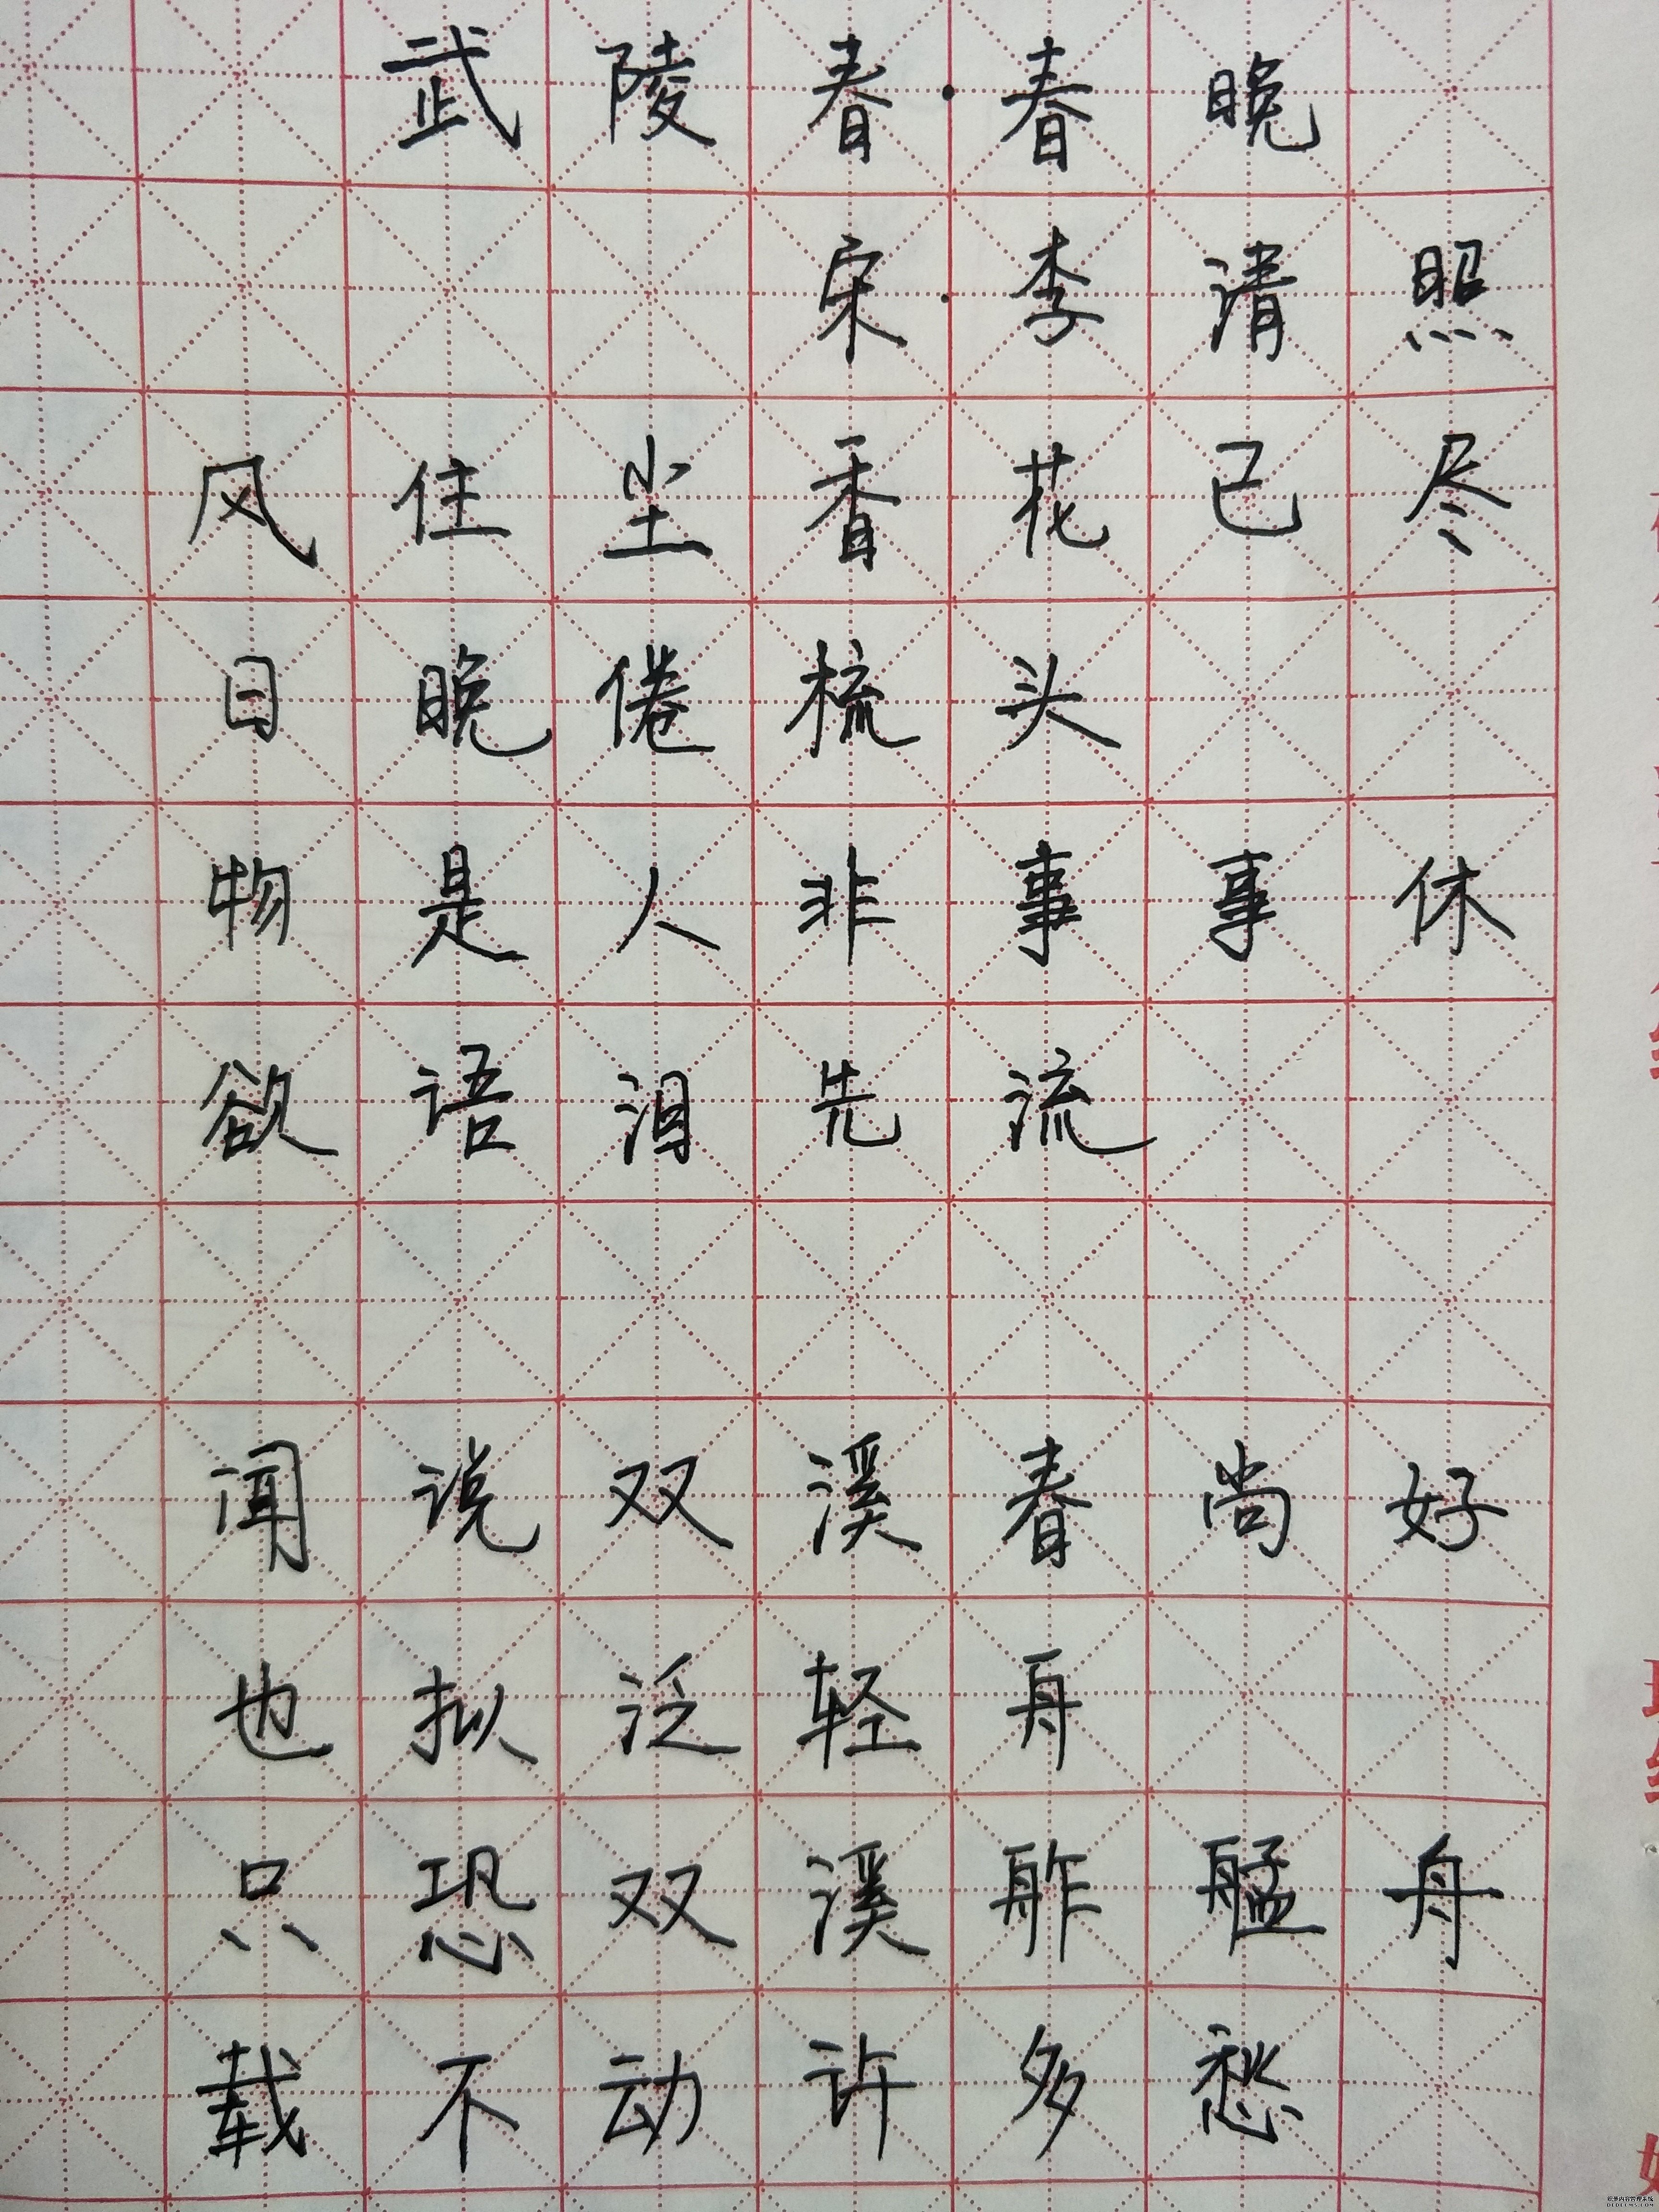 武陵春·春晚
宋·李清照
风住尘香花已尽
日晚倦梳头
物是人非事事休
欲语泪先流
闻说双溪春尚好
也拟泛轻舟
只恐双溪舴艋舟
载不动许多愁